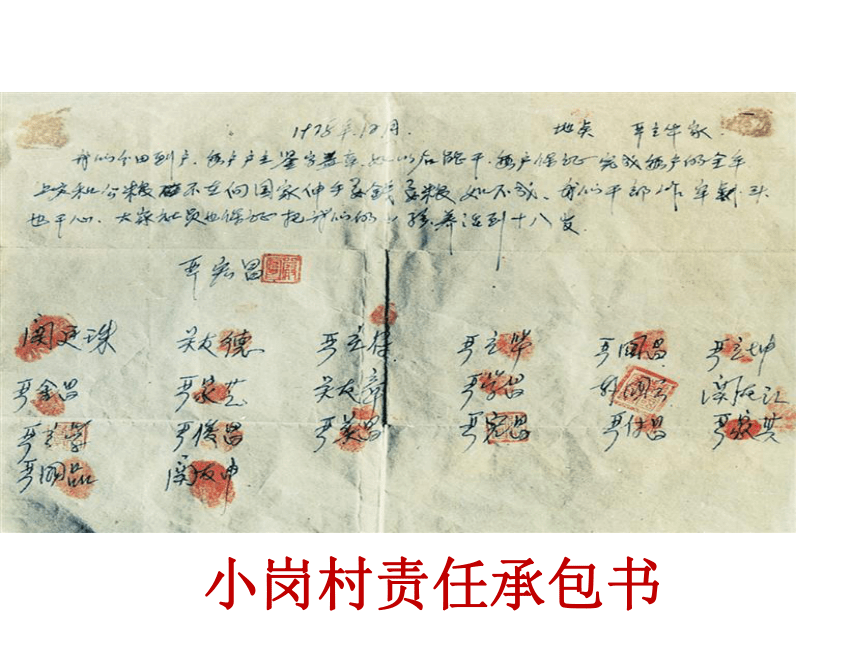 1978年12月. 地点 严立华家.
我们分田到户. 每户户主签字盖章. 如以后能干. 每户保证完成每户的全年
上交和公粮. 不在向国家伸手要钱要粮. 如不成、我们干部作牢剎头
也干心、大家社员也保证把我们的小孩养活到十八岁.
严宏昌
关廷珠 关友德 严立符 严立华 严国昌 严立坤
严金昌 严家芝 关友章 严学昌 韩国云 关友江
严立学 严俊昌 严美昌 严宏昌 严付昌 严家其
严国品 关友申
小岗村责任承包书